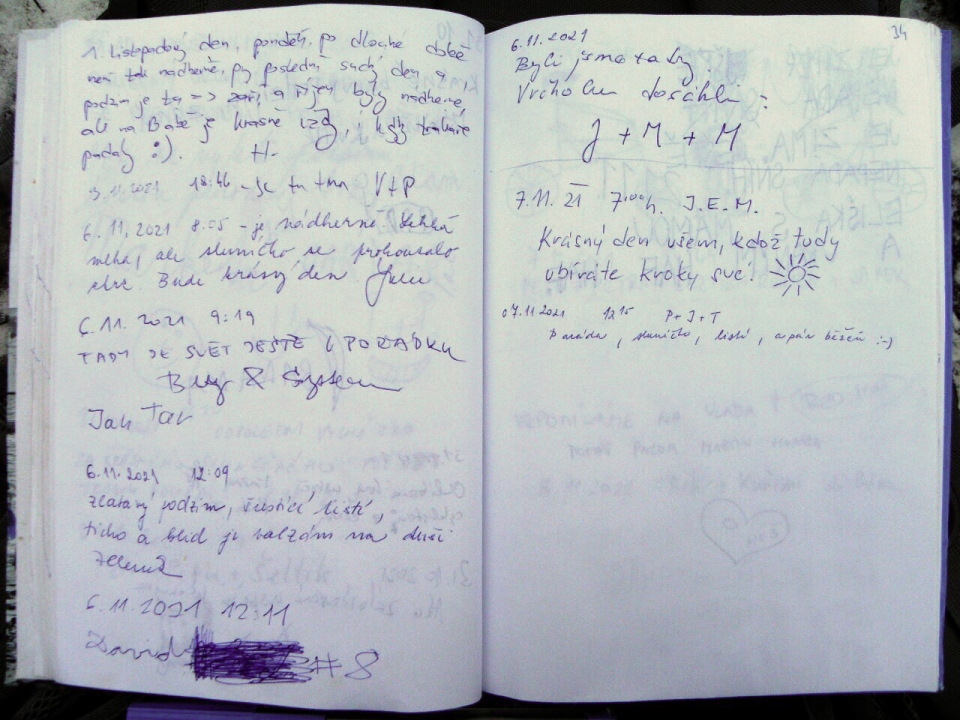 1. listopadový den, pondělí, po dlouhé době
není tak nádherně, prý poslední suchý den a
podzim je tu => září a říjen byly nádherné,
ale na Babě je krásně vždy, i když trakaře
padaly :). H.
3.11.2021 18:46 - je tu tma V+P
6.11.2021 8:05 - je nádherně. Lehká
mlha, ale sluníčko se prokousalo
Bude krásný den
6.11.2021 9:19
TADY JE SVĚT JEŠTĚ V POŘÁDKU
Bug & System
Jak
6.11.2021 12:09
zlatavý podzim, šustící listí,
ticho a klid je balzám na duši
6.11.2021 12:11
David #8
34
6.11.2021
Byli jsme tady
Vrcholu dosáhli
J + M + M
7.11.21 7:00h. J.E.M.
Krásný den všem, kdož tudy
ubíráte kroky své!
07.11.2021 12:15 P+J+T
Paráda, sluníčko, listí, a pár běžců :-)